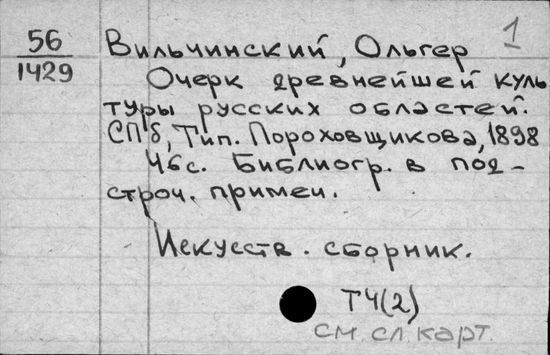 1
56
1429
Вильчинский, Ольгер
Очерк древнейшей куль
туры русских областей.
СПб, Тип. Пороховщикова, 1898
46с. Библиогр. в под-
строч. примеч.
Искусств. сборник.
Т4(2)
см. сл. карт.